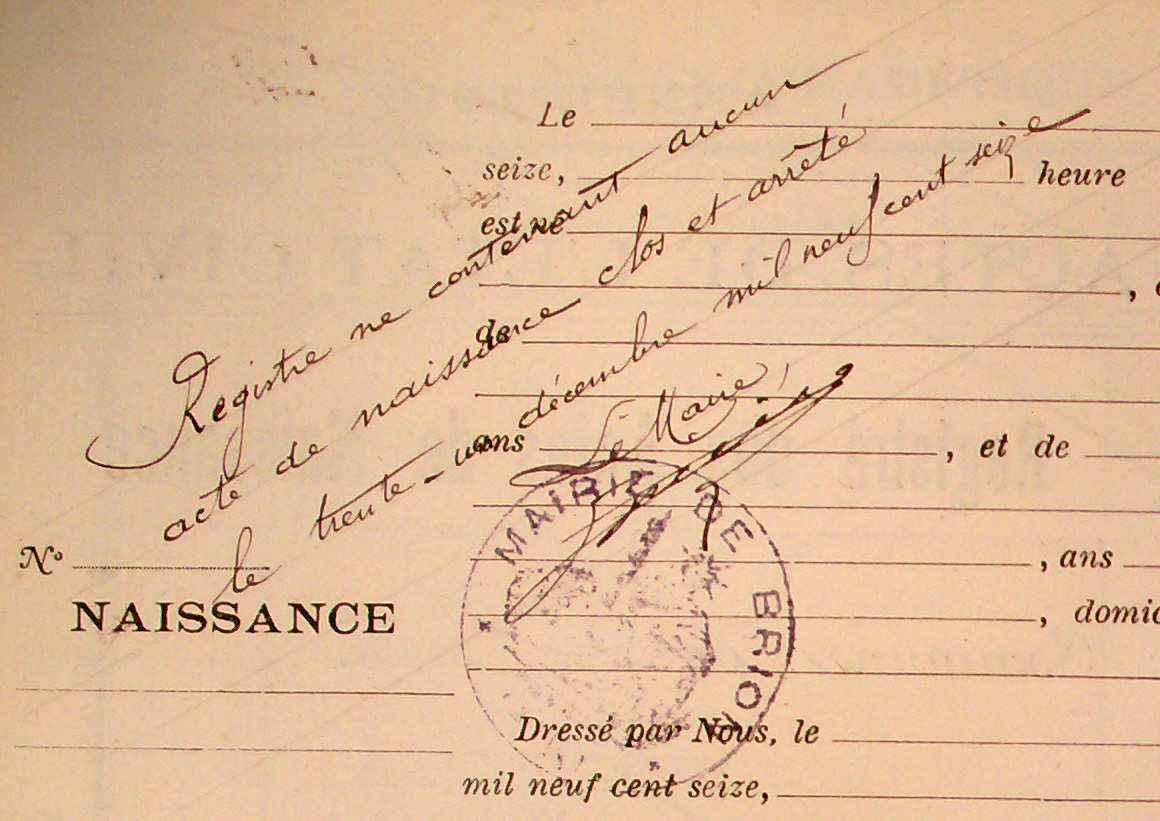 Le
seize, heure
est né
,
de
ans , et de
, ans
, domic
Dressé par Nous, le
mil neuf cent seize,
Nº
NAISSANCE
Registre ne contenant aucun
acte de naissance clos et arrêté
le trente-un décembre mil neuf cent seize
Le Maire,
MAIRIE DE BRION